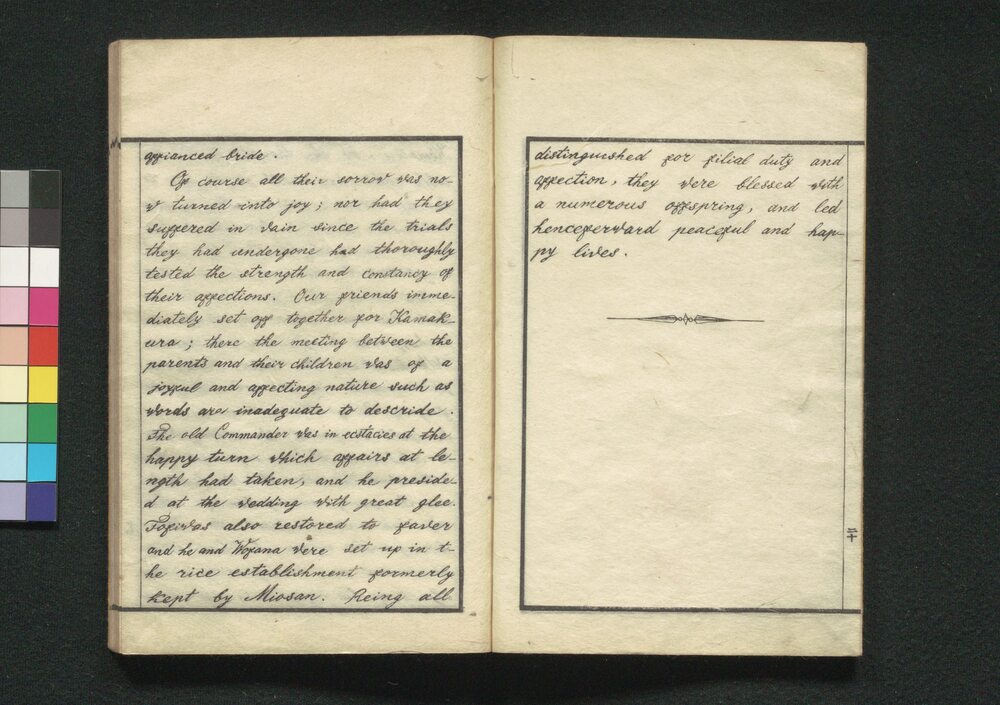 affianced bride.
Of course all their sorrow was no-
w turned into joy; nor had they
suffered in vain since the trials
they had undergone had thoroughly
tested the strength and constancy of
their affections. Our friends imme-
diately set off together for Kamak-
ura; there the meeting between the
parents and their children was of a
joyful and affecting nature such as
words are inadequate to descride.
The old Commander was in ecstacies at the
happy turn which affairs at le-
ngth had taken, and he preside-
d at the wedding with great glee.
was also restored to faver
and he and Wofana were set up in t-
he rice establishment formerly
kept by Miosan. Reing all
distinguished for filial duty and
affection, they were blessed with
a numerous offspring, and led
henceferward peaceful and hap-
py lives.
二十